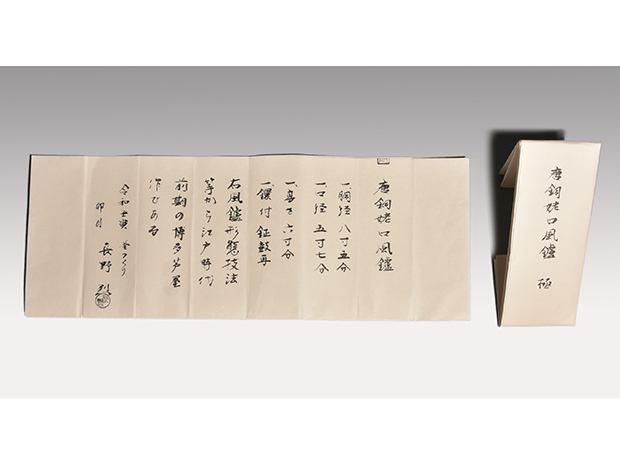 唐銅姥口風鑪
一、胴径 八寸五分
一、口径 五寸七分
一、高さ 六寸分
一、鐶付 鉦鼓耳
右風鑪形態技法
等から江戸時代
前期の博多芦屋
作である
令和壬寅 釜つくり
卯月 長野 烈
唐銅姥口風鑪 極